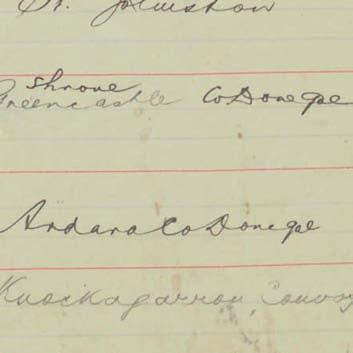 St. Johnston
Shrove
Greencastle Co Donegal
Ardara Co Donegal
Knockagarran, Convoy